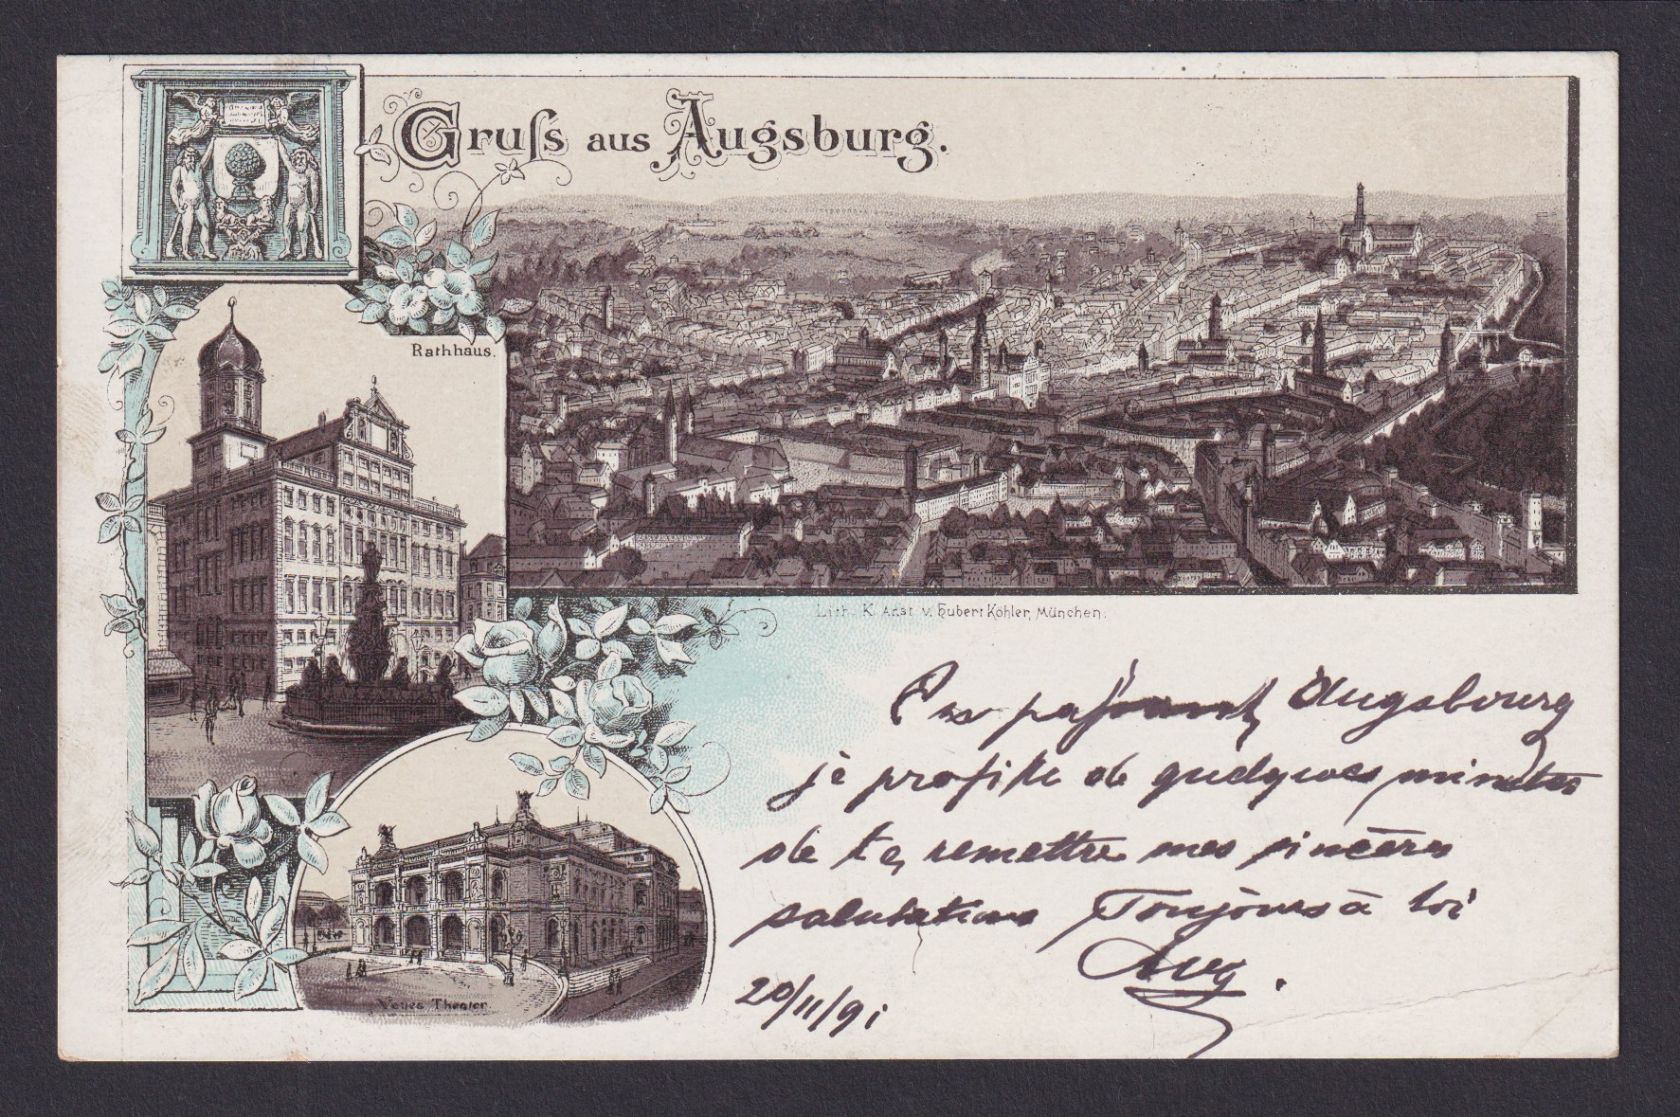 Gruſs aus Augsburg.
Rathhaus.
Lith. K. Anst. v. Hubert Köhler, München.
En passant Augsbourg
je profite de quelques minutes
de te remettre mes sincères
salutations Toujours à toi
Aug.
20/11/91
Neues Theater.